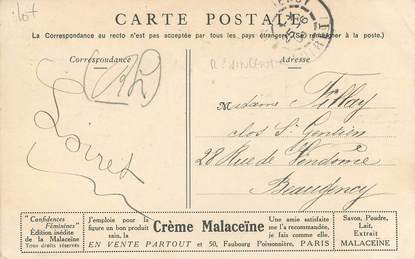 ilot
CARTE POSTALE
La Correspondance au recto n'est pas acceptée par tous les pays étrangers (Se renseigner à la poste.)
Correspondance
Adresse
Madame
clos St Gentien
28 Rue de Vendôme
Beaugency
Loiret
"Confidences Féminines"
Édition inédite
de la Malaceïne
Tous droits réservés
J'emploie pour la
figure un bon produit
sain, la
Crème Malaceïne
Une amie satisfaite
me l'a recommandée,
je fais comme elle.
EN VENTE PARTOUT et 50, Faubourg Poissonnière, PARIS
Savon, Poudre,
Lait,
Extrait
MALACEINE